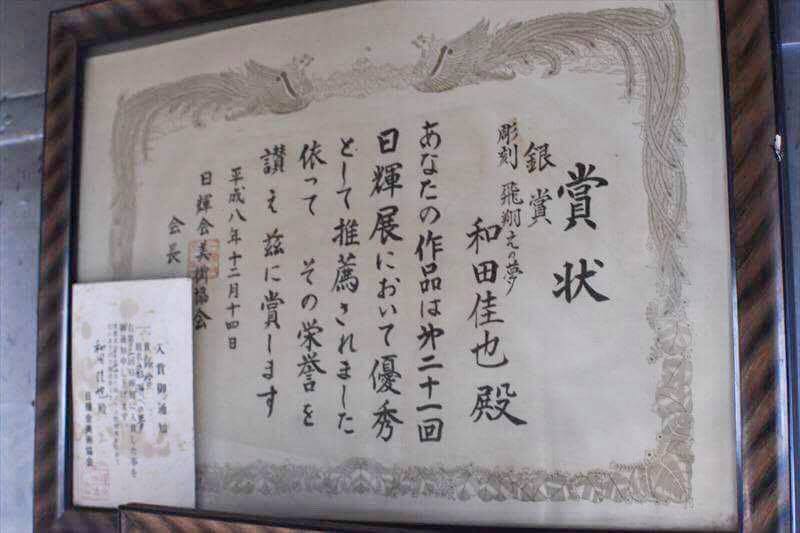 賞状
銀賞
彫刻 飛翔えの夢
和田佳也殿
あなたの作品は第二十一回
日輝展において優秀
として推薦されました
依って その栄誉を
讃え茲に賞します
平成八年十二月十四日
日輝会美術協会
会長
入賞御通知
和田佳也殿
日輝会美術協会